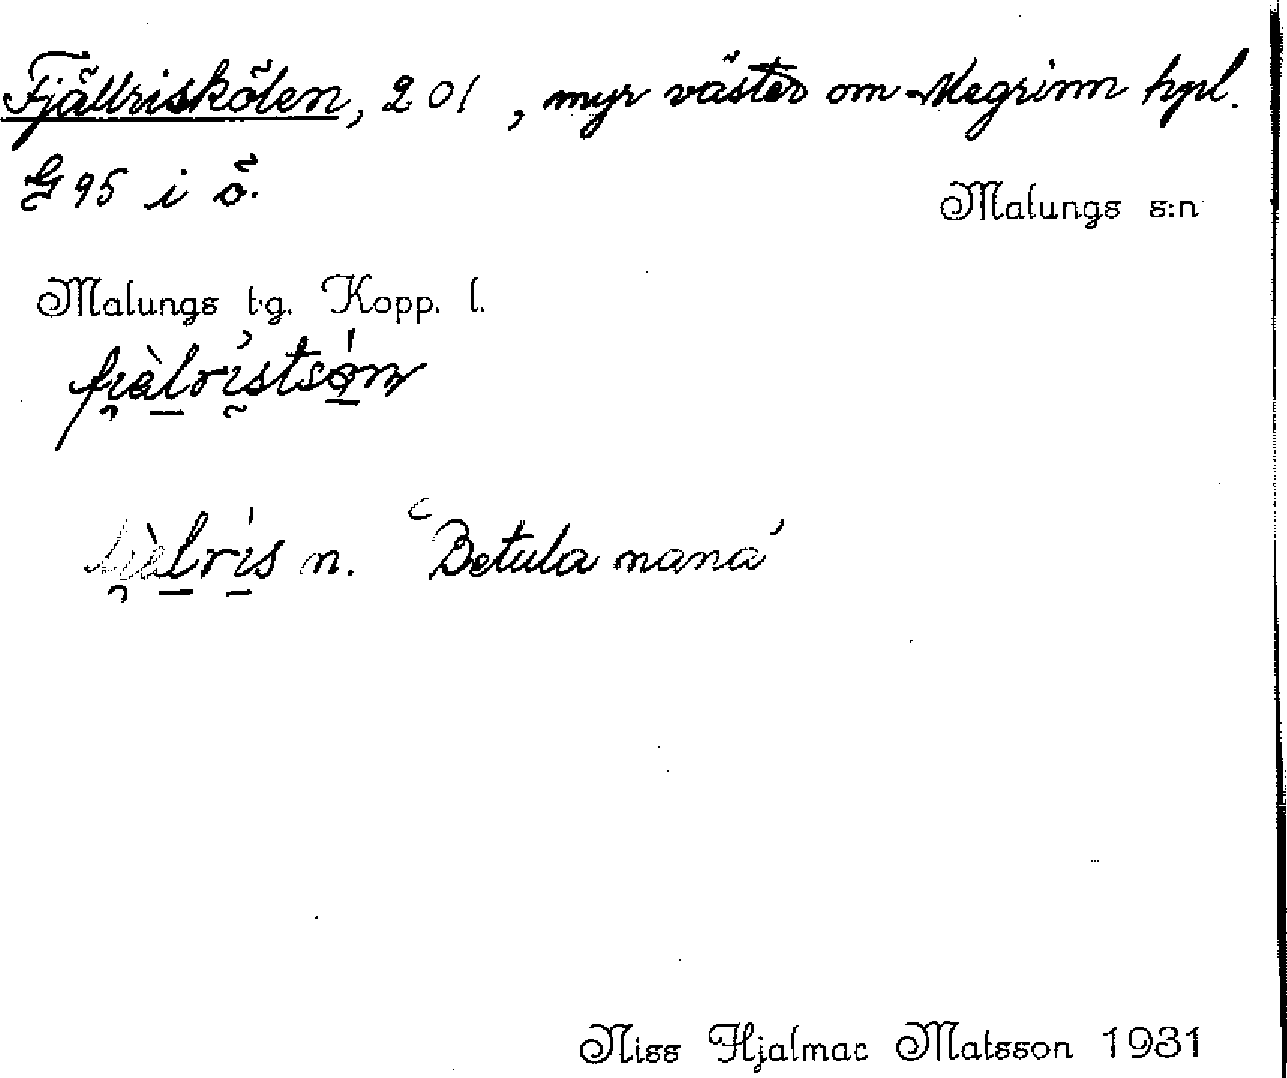 Fjällriskölen, 201, myr väster om Megrinn hpl.
G 95 i ö.
Malungs s:n
Malungs t·g. Kopp. l.
n. ‘Betula nana’
Niss Hjalmar Matsson 1931